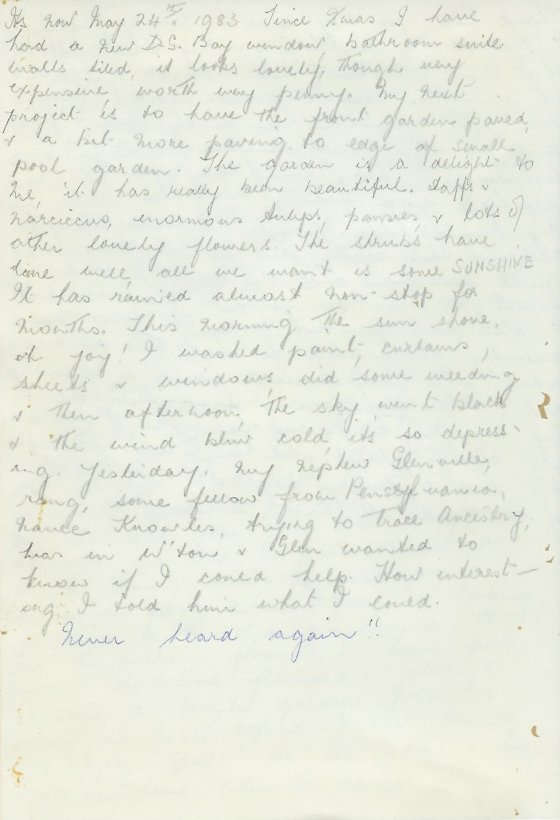 Its now May 24th. 1983 Since Xmas I have
had a new D.G. Bay window bathroom suite
walls tiled, it looks lovely, though very
expensive worth every penny. My next
project is to have the front garden paved,
& a bit more paving to edge of small
pool garden. The garden is a delight to
me, it has really been beautiful. Daffs &
narciccus, enormous tulips, pansies & lots of
other lovely flowers. The shrubs have
done well, all we want is some SUNSHINE
It has rained almost non-stop for
months. This morning the sun shone,
oh joy! I washed paint, curtains,
sheets & windows, did some weeding
& then afternoon, the sky went black
& the wind blew cold, its so depress-
ing. Yesterday. My nephew Glenville,
rang, some fellow from Pensylvania,
name Knowles, trying to trace Ancestry,
was in W'ton & Glen wanted to
know if I could help. How interest-
ing. I told him what I could.
Never heard again!!